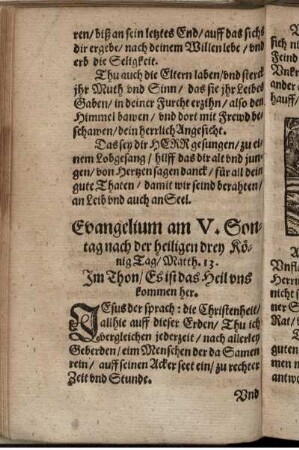 ren/ biß an sein letztes End/ auff das sichs
dir ergebe/ nach deinem Willen lebe/ vnd
erb die Seligkeit.
Thu auch die Eltern laben/ vnd sterck
jhr Muth vnd Sinn/ das sie jhr Leibes
Gaben/ in deiner Furcht erzihn/ also den
Himmel bawen/ vnd dort mit Frewd be-
schawen/ dein herrlich Angesicht.
Das sey dir HERR gesungen/ zu ei-
nem Lobgesang/ hilff das dir alt vnd jun-
gen/ von Hertzen sagen danck/ für all dein
gute Thaten/ damit wir seind berahten/
an Leib vnd auch an Seel.
Evangelium am V. Son-
tag nach der heiligen drey Kö-
nig Tag/ Matth. 13.
Im Thon/ Es ist das Heil vns
kommen her.
JEsus der sprach: die Christenheit/
allhie auff dieser Erden/ Thu ich
vergleichen jederzeit/ nach allerley
Geberden/ eim Menschen der da Samen
rein/ auff seinen Acker seet ein/ zu rechter
Zeit vnd Stunde.
Vnd